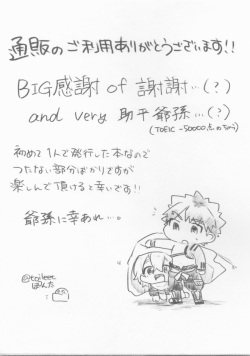 通販のご利用ありがとうございます!!
BIG感謝 of 謝謝…(?)
and very 助平爺孫…(?)
(TOEIC -50000点のちから)
初めて1人で発行した本なので
つたない部分ばかりですが
楽しんで頂けると幸いです!!
爺孫に幸あれ…。
@toileet
ぽんた